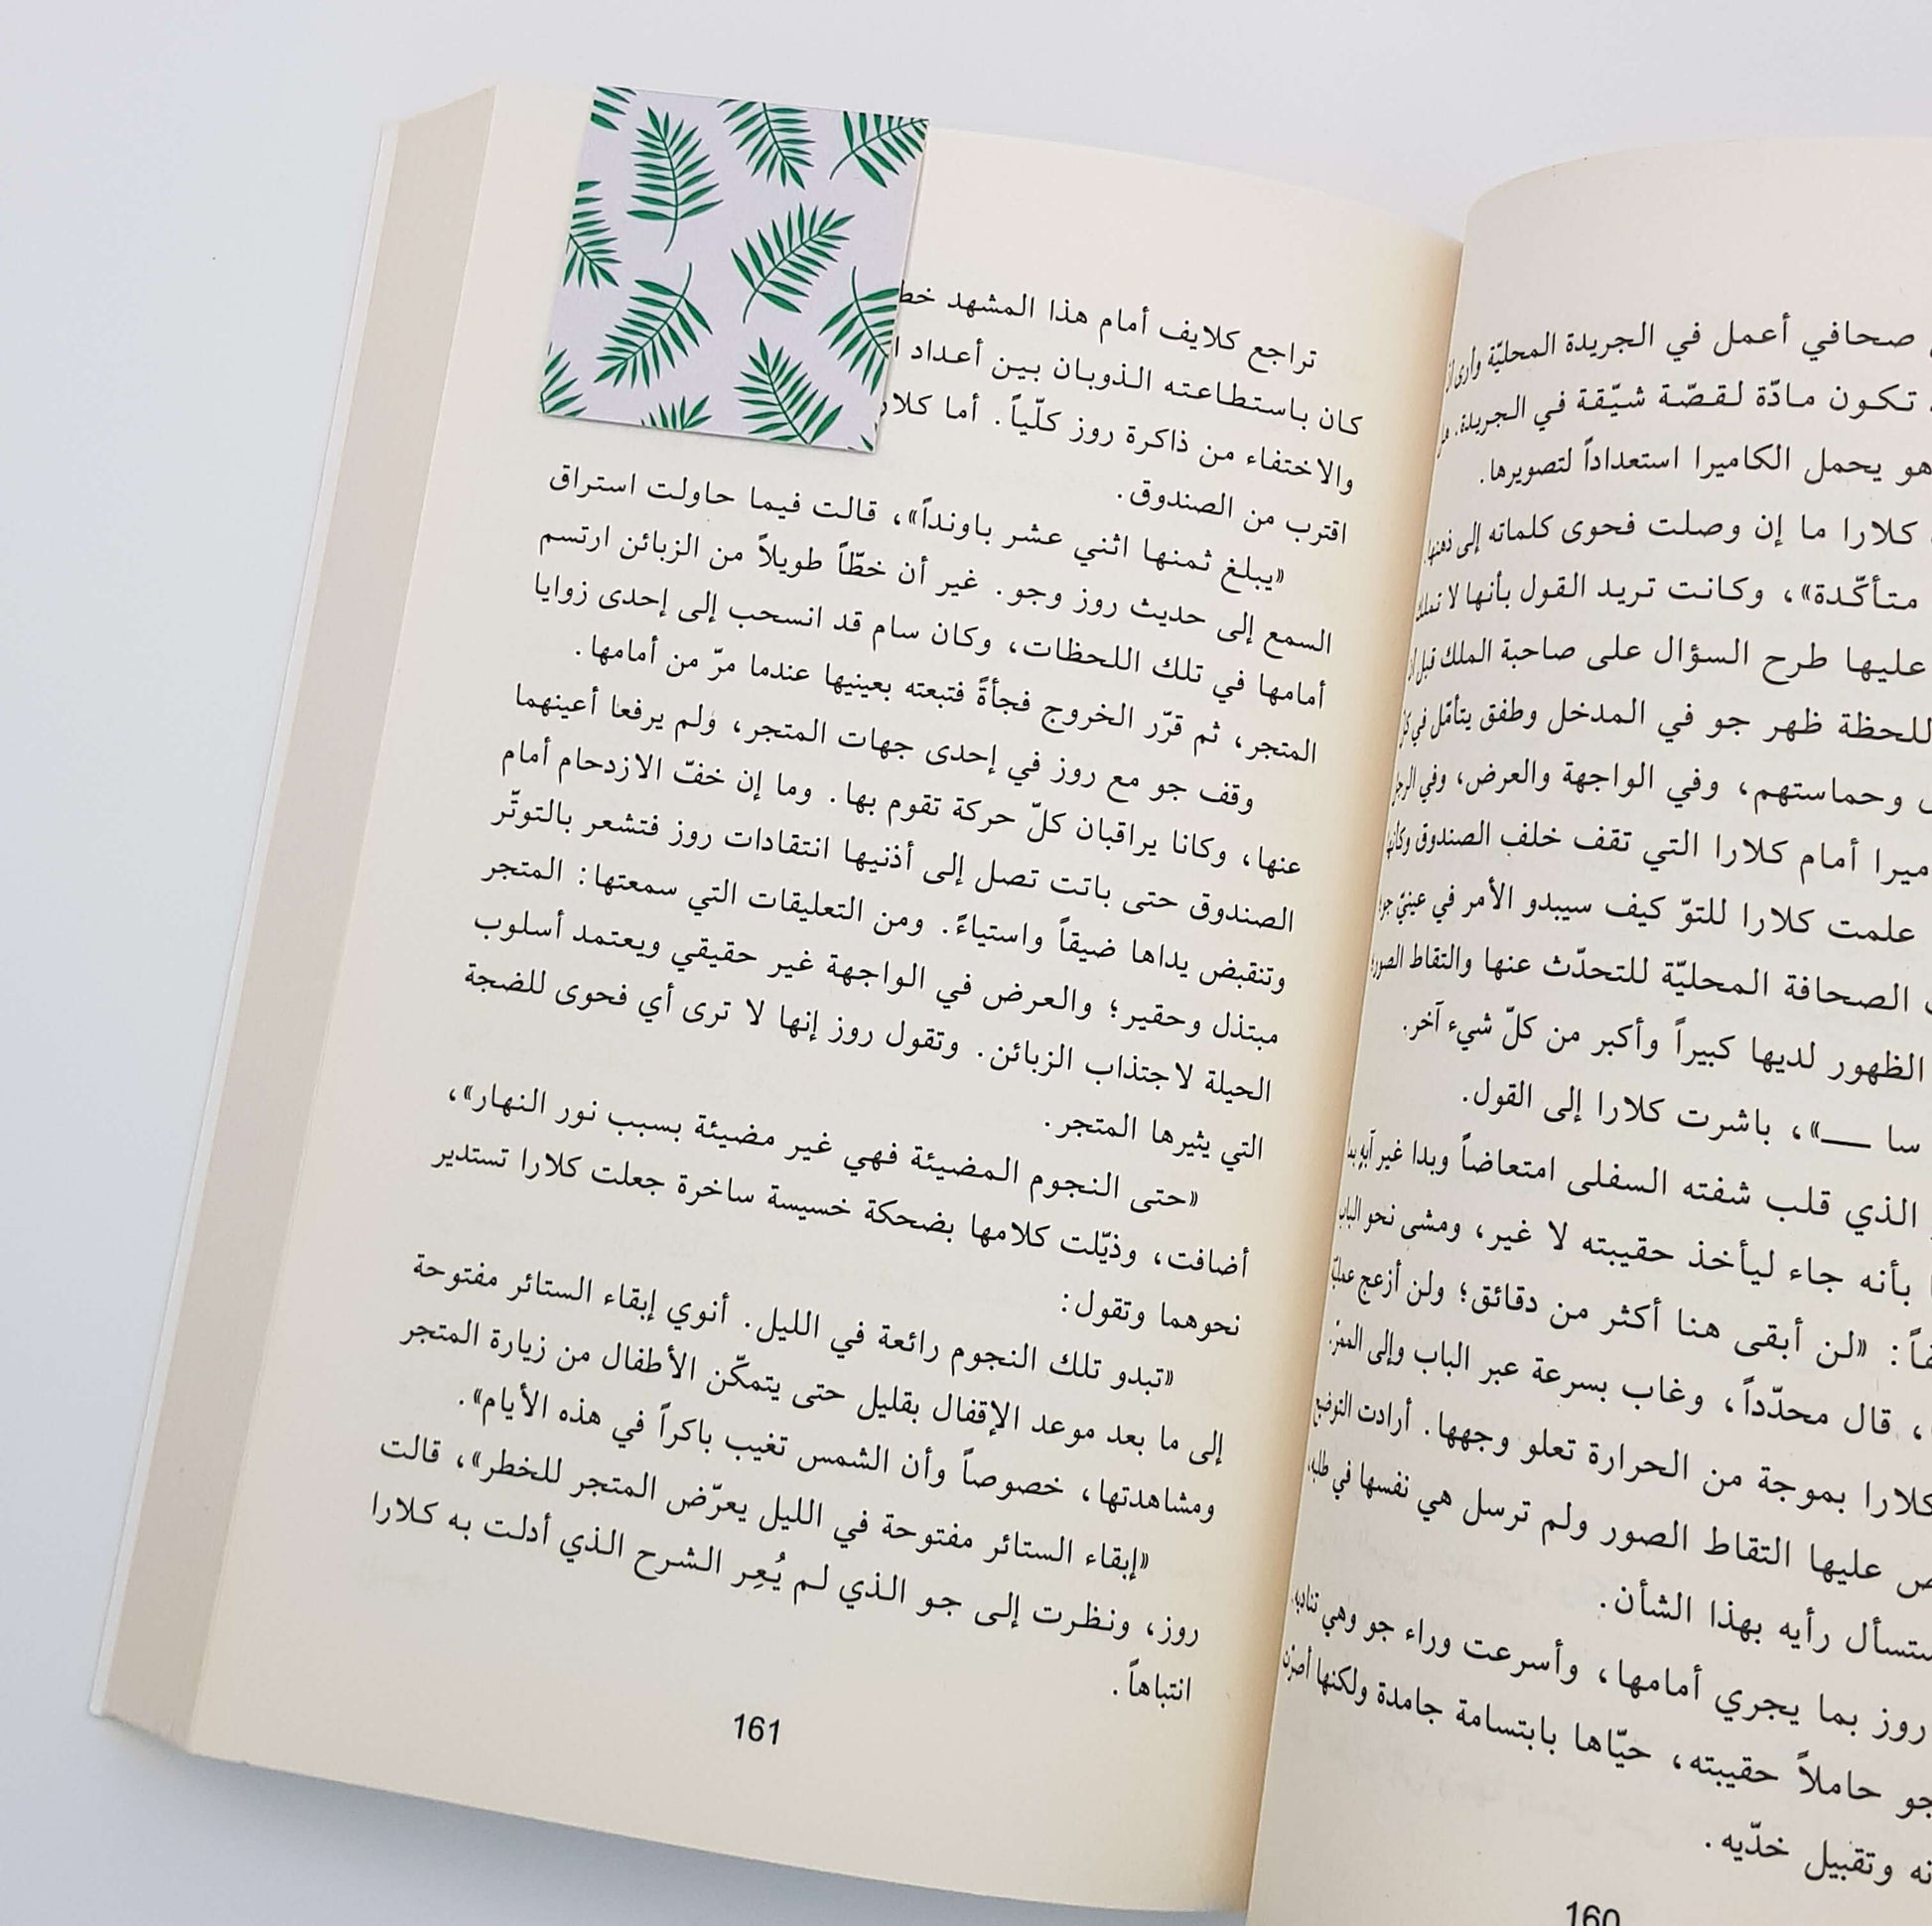 صحافي أعمل في الجريدة المحليّة وأرى
تكون مادّة لقصّة شيّقة في الجريدة.
هو يحمل الكاميرا استعداداً لتصويرها.
كلارا ما إن وصلت فحوى كلماته إلى ذهنها
متأكّدة»، وكانت تريد القول بأنها لا تملك
عليها طرح السؤال على صاحبة الملك قبل
للحظة ظهر جو في المدخل وطفق يتأمّل في
وحماستهم، وفي الواجهة والعرض، وفي الرجل
ميرا أمام كلارا التي تقف خلف الصندوق وكأنها
علمت كلارا للتوّ كيف سيبدو الأمر في عينيّ جو؛
الصحافة المحليّة للتحدّث عنها والتقاط الصور؛
الظهور لديها كبيراً وأكبر من كلّ شيء آخر.
سا ــــ»، باشرت كلارا إلى القول.
الذي قلب شفته السفلى امتعاضاً وبدا غير آبهٍ بما
بأنه جاء ليأخذ حقيبته لا غير، ومشى نحو الباب
«لن أبقى هنا أكثر من دقائق؛ ولن أزعج
قال محدّداً، وغاب بسرعة عبر الباب وإلى الممرّ.
كلارا بموجة من الحرارة تعلو وجهها. أرادت التوضيح
عليها التقاط الصور ولم ترسل هي نفسها في طلبه،
ستسأل رأيه بهذا الشأن.
روز بما يجري أمامها، وأسرعت وراء جو وهي تناديه.
جو حاملاً حقيبته، حيّاها بابتسامة جامدة ولكنها أصرّت
وتقبيل خدّيه.
160
تراجع كلايف أمام هذا المشهد خط
كان باستطاعته الذوبان بين أعداد
والاختفاء من ذاكرة روز كلّياً. أما كلار
اقترب من الصندوق.
«يبلغ ثمنها اثني عشر باونداً»، قالت فيما حاولت استراق
السمع إلى حديث روز وجو. غير أن خطّاً طويلاً من الزبائن ارتسم
أمامها في تلك اللحظات، وكان سام قد انسحب إلى إحدى زوايا
المتجر، ثم قرّر الخروج فجأةً فتبعته بعينيها عندما مرّ من أمامها.
وقف جو مع روز في إحدى جهات المتجر، ولم يرفعا أعينهما
عنها، وكانا يراقبان كلّ حركة تقوم بها. وما إن خفّ الازدحام أمام
الصندوق حتى باتت تصل إلى أذنيها انتقادات روز فتشعر بالتوتّر
وتنقبض يداها ضيقاً واستياءً. ومن التعليقات التي سمعتها: المتجر
مبتذل وحقير؛ والعرض في الواجهة غير حقيقي ويعتمد أسلوب
الحيلة لاجتذاب الزبائن. وتقول روز إنها لا ترى أي فحوى للضجة
التي يثيرها المتجر.
«حتى النجوم المضيئة فهي غير مضيئة بسبب نور النهار»،
أضافت، وذيّلت كلامها بضحكة خسيسة ساخرة جعلت كلارا تستدير
نحوهما وتقول:
«تبدو تلك النجوم رائعة في الليل. أنوي إبقاء الستائر مفتوحة
إلى ما بعد موعد الإقفال بقليل حتى يتمكّن الأطفال من زيارة المتجر
ومشاهدتها، خصوصاً وأن الشمس تغيب باكراً في هذه الأيام».
«إبقاء الستائر مفتوحة في الليل يعرّض المتجر للخطر»، قالت
روز، ونظرت إلى جو الذي لم يُعِر الشرح الذي أدلت به كلارا
انتباهاً.
161